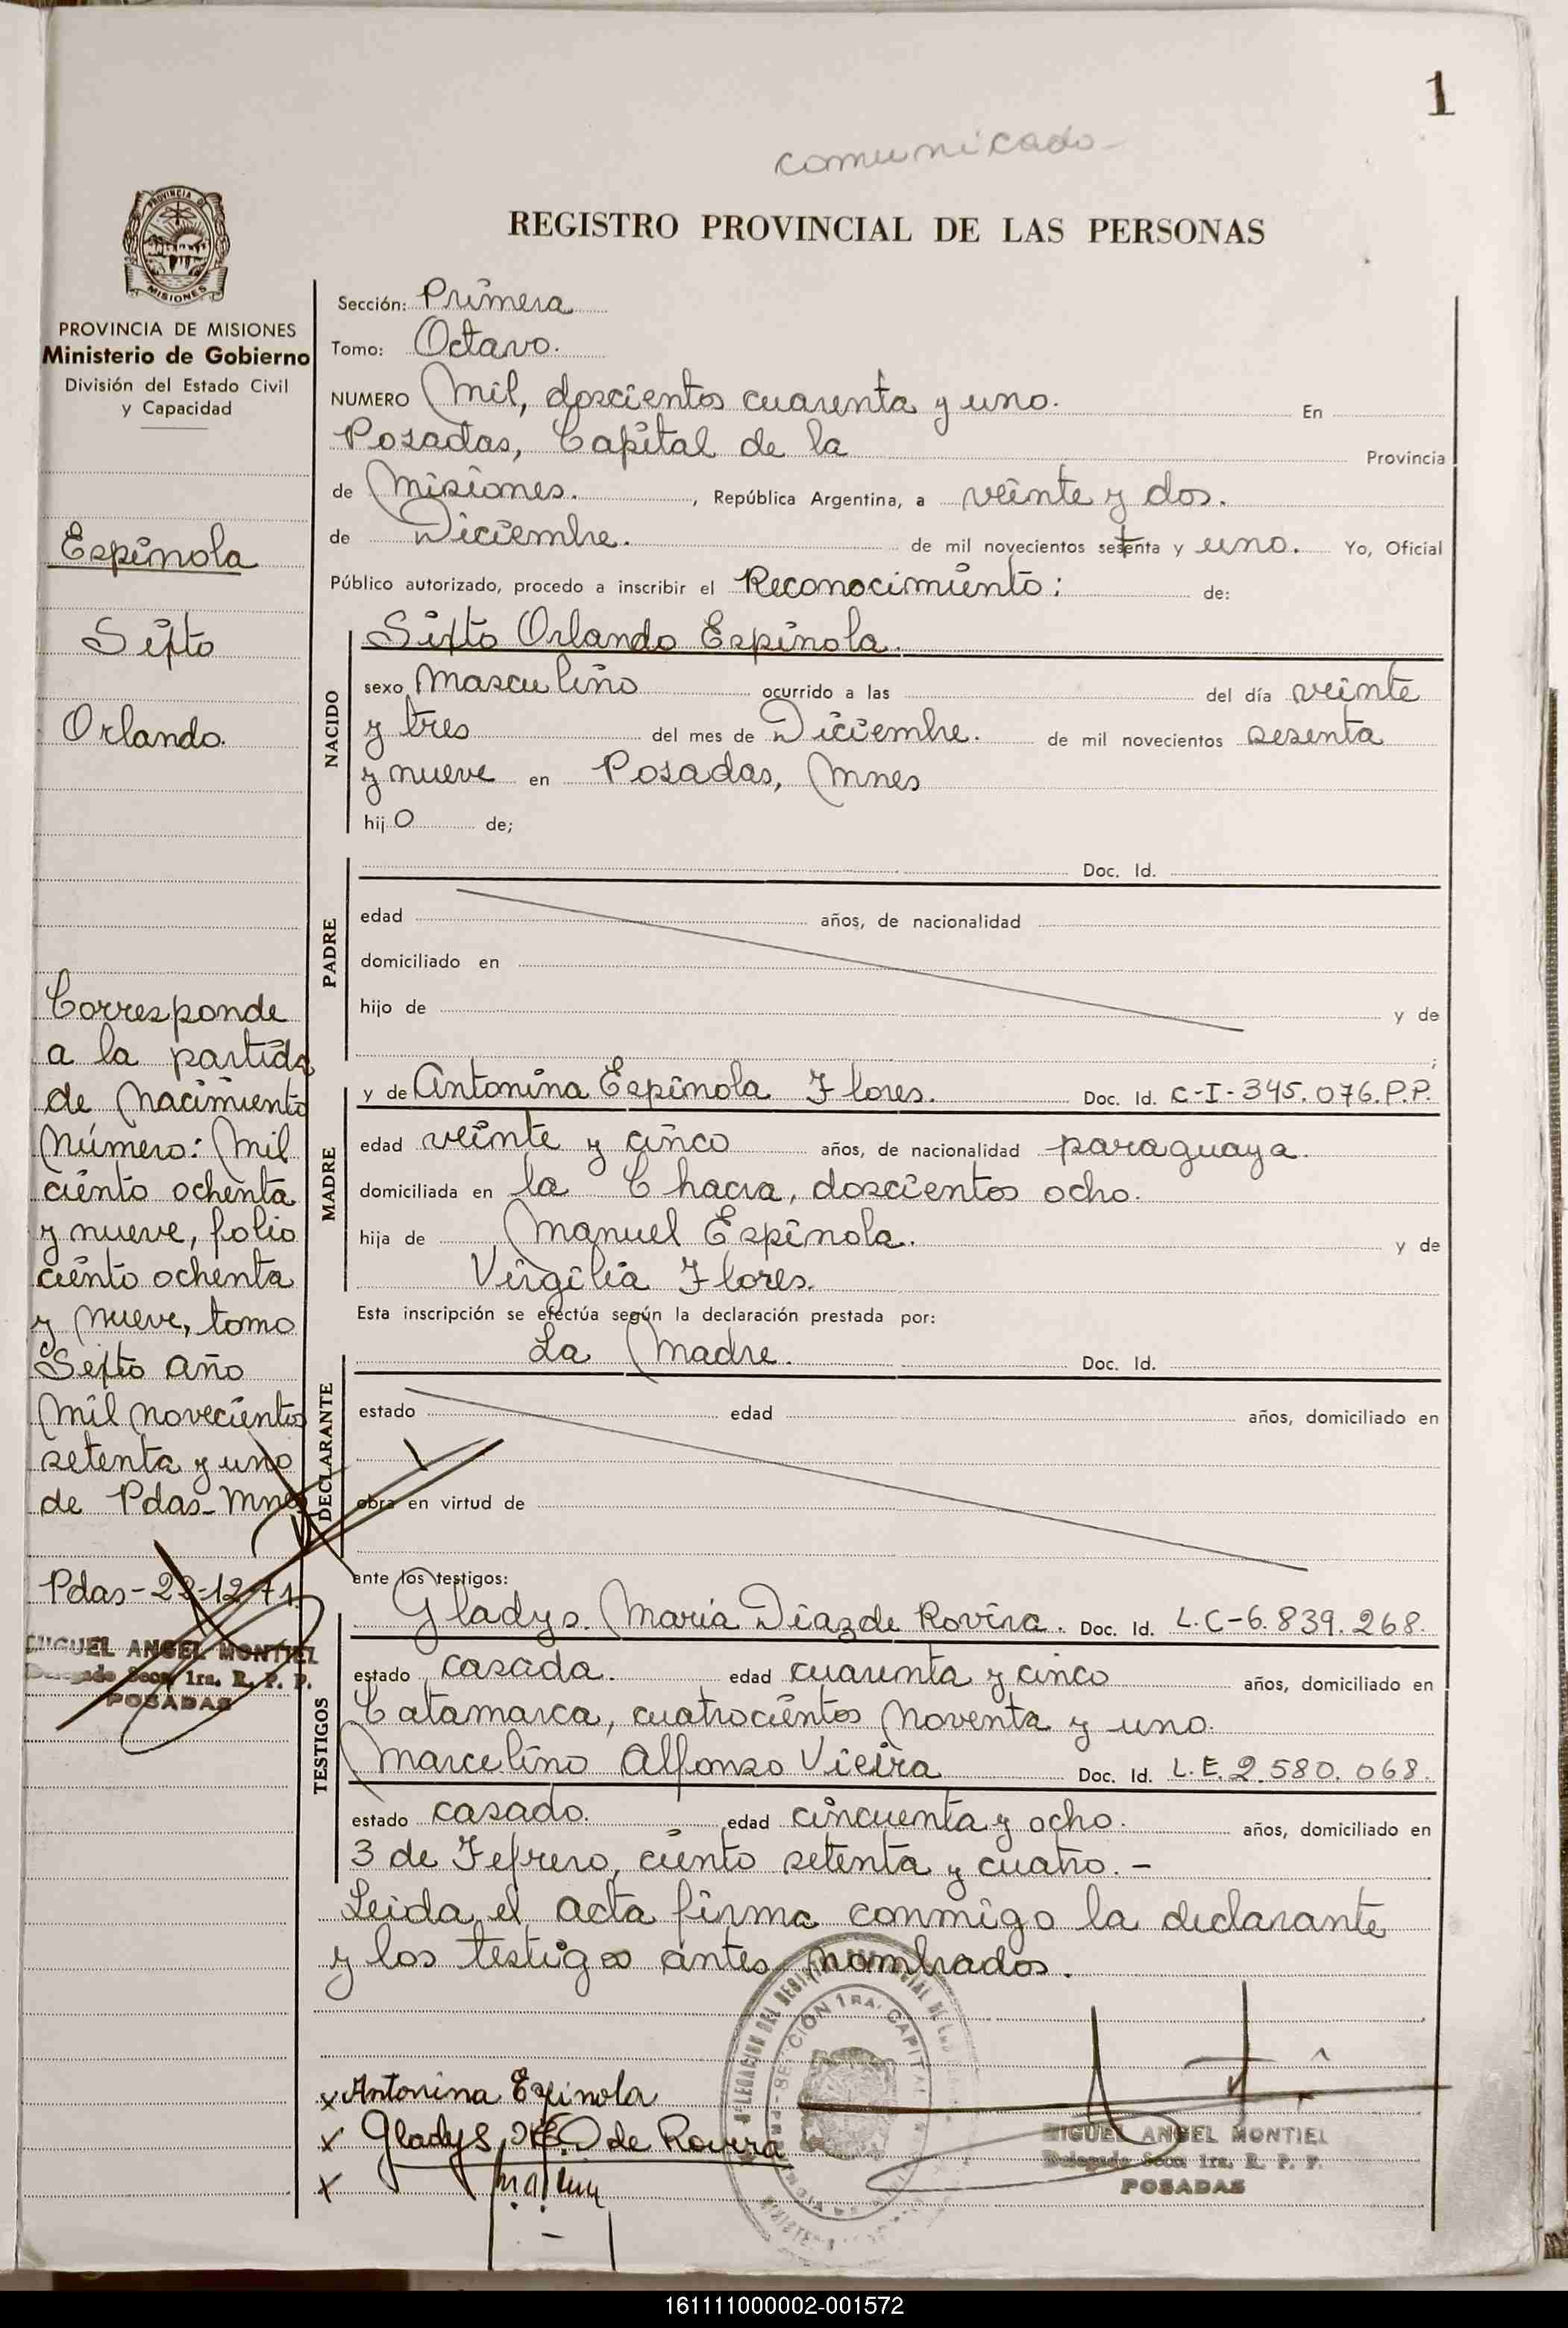 1
comunicado-
REGISTRO PROVINCIAL DE LAS PERSONAS
PROVINCIA DE
MISIONES
PROVINCIA DE MISIONES
Ministerio de Gobierno
División del Estado Civil
y Capacidad
Espínola
Sixto
Orlando.
Corresponde
a la partida
de Nacimiento
Número: Mil
ciento ochenta
y nueve, folio
ciento ochenta
y Nueve, tomo
Sexto año
Mil novecientos
setenta y uno
de Pdas-Mnes
Pdas-22-12-71.
MIGUEL ANGEL MONTIEL
Delegado Secc. 1ra. R. P. P.
POSADAS
Sección: Primera
Tomo: Octavo.
NUMERO Mil, doscientos cuarenta y uno. En
Posadas, Capital de la Provincia
de Misiones. , República Argentina, a veinte y dos.
de Diciembre. de mil novecientos setenta y uno. Yo, Oficial
Público autorizado, procedo a inscribir el Reconocimiento: de:
NACIDO
Sixto Orlando Espínola.
sexo Masculino ocurrido a las del día veinte
y tres del mes de Diciembre. de mil novecientos sesenta
y nueve en Posadas, Mnes
hijo de;
PADRE
Doc. Id.
edad años, de nacionalidad
domiciliado en
hijo de y de
;
MADRE
y de Antonina Espínola Flores. Doc. Id. C-I-345.076.P.P.
edad veinte y cinco años, de nacionalidad paraguaya.
domiciliada en la Chacra, doscientos ocho.
hija de Manuel Espínola. y de
Virgilia Flores.
Esta inscripción se efectúa según la declaración prestada por:
DECLARANTE
La Madre. Doc. Id.
estado edad años, domiciliado en
obra en virtud de
ante los testigos:
TESTIGOS
Gladys. María Díaz de Rovira. Doc. Id. L.C-6.839.268.
estado casada. edad cuarenta y cinco años, domiciliado en
Catamarca, cuatrocientos Noventa y uno.
Marcelino Alfonso Vieira Doc. Id. L.E.2.580.068.
estado casado. edad cincuenta y ocho. años, domiciliado en
3 de Fefrero, ciento setenta y cuatro.-
Leida el acta firma conmigo la declarante
y los testigos antes nombrados.
SECCION 1RA. CAPITAL
x Antonina Epinola
x Gladys de Rovira
x
MIGUEL ANGEL MONTIEL
Delegado Secc. 1ra. R. P. P.
POSADAS
161111000002-001572